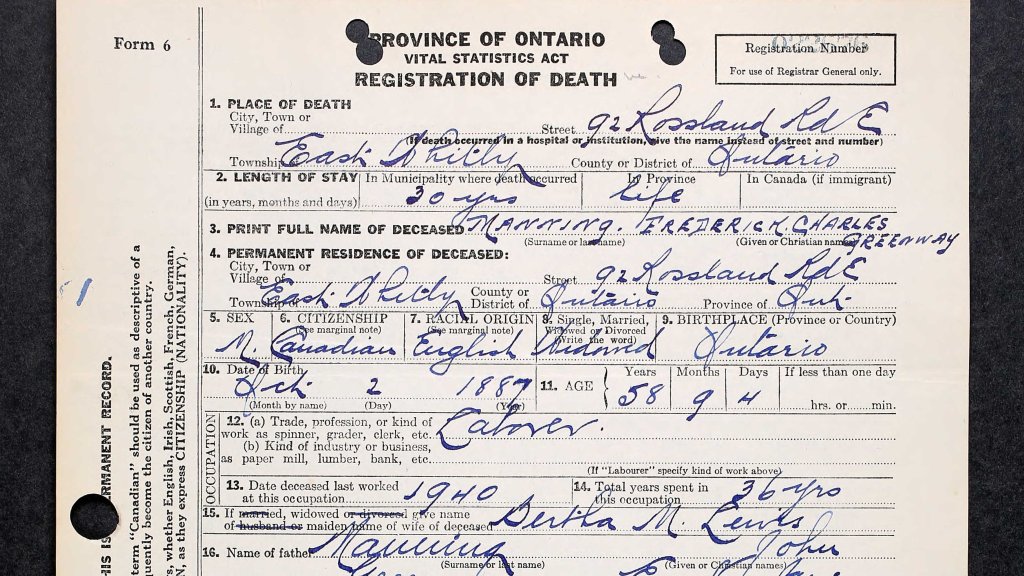 Form 6
PROVINCE OF ONTARIO
VITAL STATISTICS ACT
REGISTRATION OF DEATH
Registration Number
For use of Registrar General only.
1. PLACE OF DEATH
City, Town or
Village of Street 92 Rossland Rd E
(If death occurred in a hospital or institution, give the name instead of street and number)
Township of East Whitby County or District of Ontario
2. LENGTH OF STAY In Municipality where death occurred In Province In Canada (if immigrant)
(in years, months and days) 30 yrs life
3. PRINT FULL NAME OF DECEASED MANNING. FREDERICK. CHARLES
GREENWAY
(Surname or last name) (Given or Christian names)
4. PERMANENT RESIDENCE OF DECEASED:
City, Town or
Village of Street 92 Rossland Rd E
Township of East Whitby County or District of Ontario Province of Ont.
5. SEX 6. CITIZENSHIP 7. RACIAL ORIGIN 8. Single, Married, 9. BIRTHPLACE (Province or Country)
(See marginal note) (See marginal note) Widowed or Divorced
(Write the word)
M. Canadian English Widowed Ontario
10. Date of Birth Years Months Days If less than one day
Oct. 2 1887 11. AGE 58 9 4 hrs. or min.
(Month by name) (Day) (Year)
OCCUPATION
12. (a) Trade, profession, or kind of
work as spinner, grader, clerk, etc. Laborer.
(b) Kind of industry or business,
as paper mill, lumber, bank, etc.
(If "Labourer" specify kind of work above)
13. Date deceased last worked 14. Total years spent in
at this occupation 1940 this occupation 36 yrs
15. If married, widowed or divorced give name
of husband or maiden name of wife of deceased Bertha M. Lewis
16. Name of father Manning John
(Surname or last name) (Given or Christian names)
HIS IS PERMANENT RECORD.
term "Canadian" should be used as descriptive of a
quently become the citizen of another country.
s, whether English, Irish, Scottish, French, German,
N, as they express CITIZENSHIP (NATIONALITY).